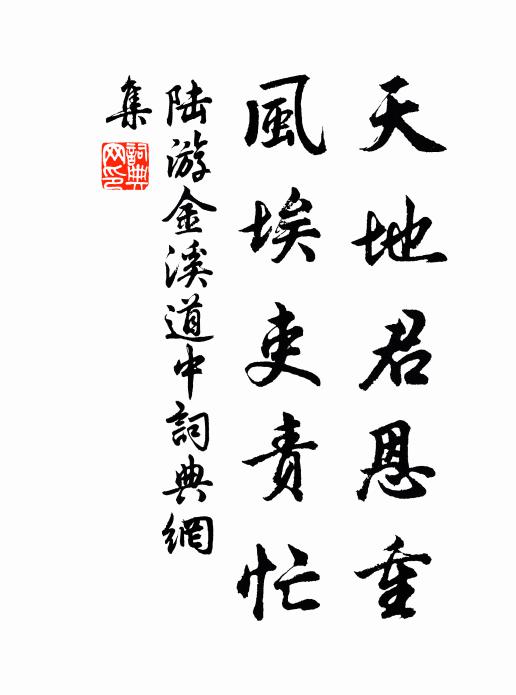 天地君恩重
風埃吏責忙
陸游金溪道中詞典網
集
詞典
网印